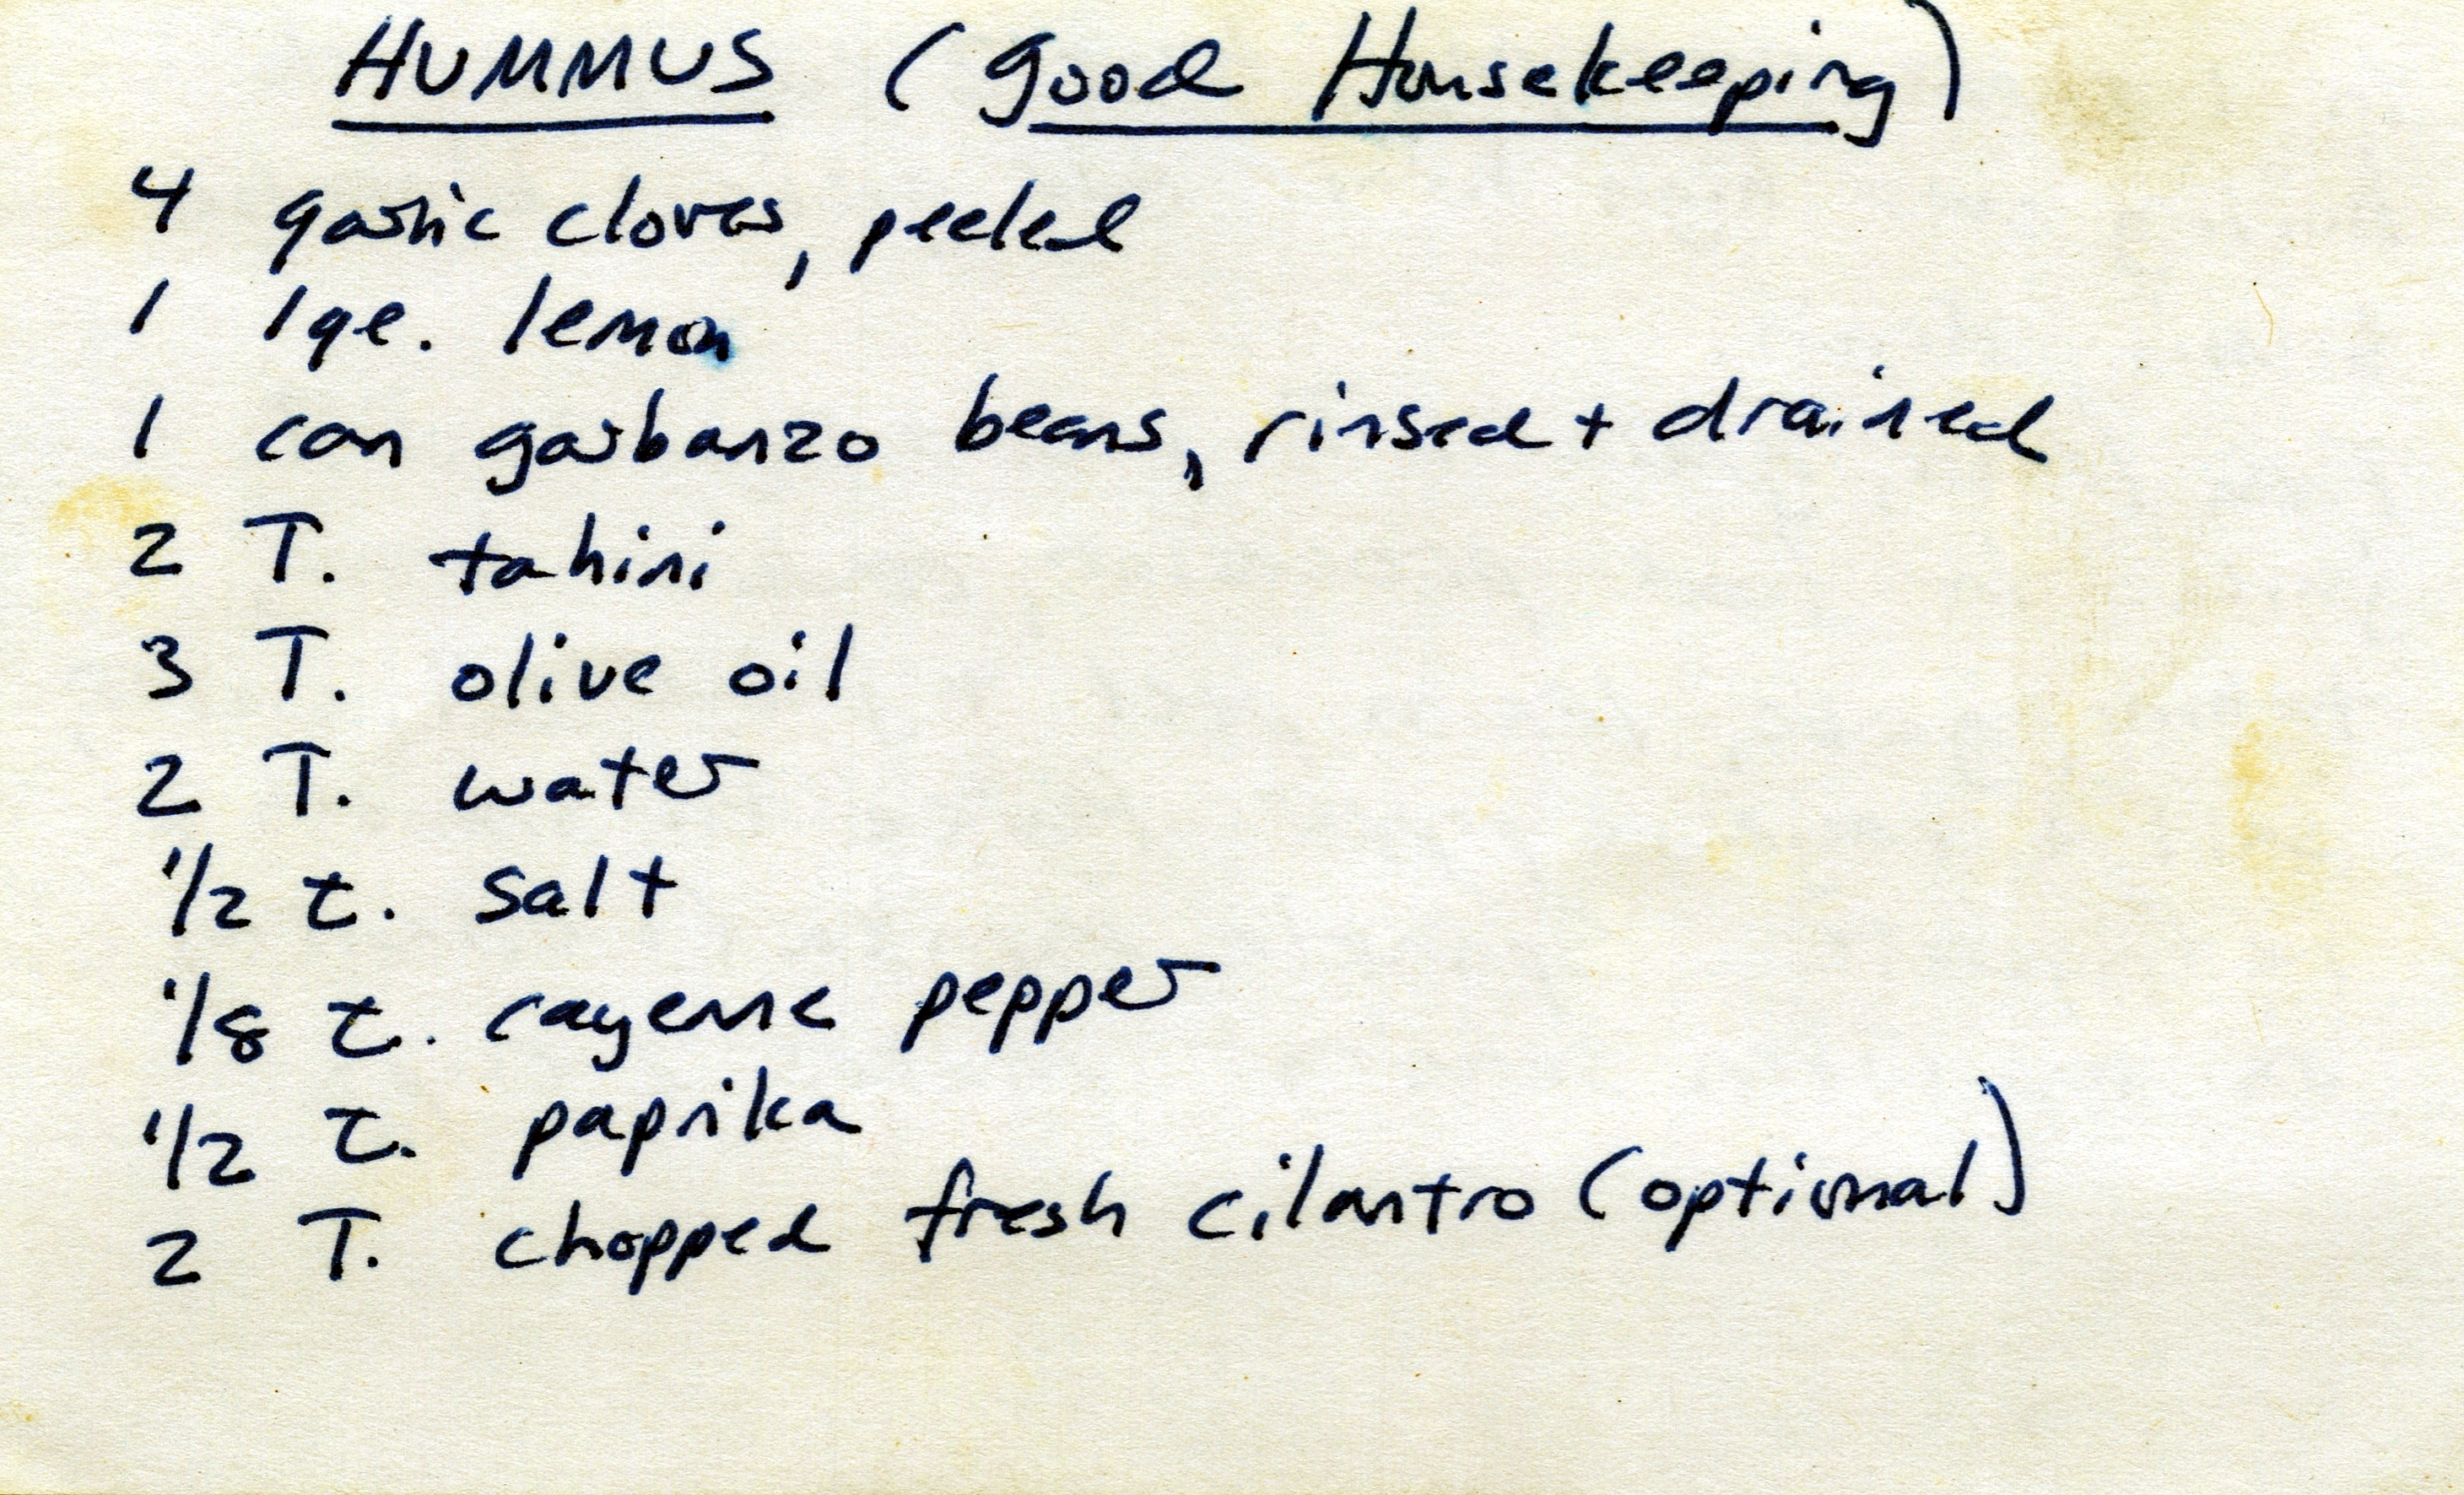 HUMMUS (Good Housekeeping)
4 garlic cloves, peeled
1 lge. lemon
1 can garbanzo beans, rinsed + drained
2 T. tahini
3 T. olive oil
2 T. water
1/2 t. salt
1/8 t. cayenne pepper
1/2 t. paprika
2 T. chopped fresh cilantro (optional)